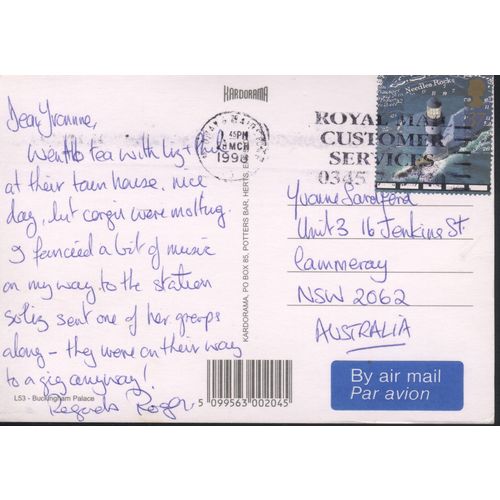 KARDORAMA
Dear Yvonne,
Went to tea with Liz + Phil
at their town house, nice
day, but corgis were molting.
I fancied a bit of music
on my way to the station
so Liz sent one of her groups
along - they were on their way
to a gig anyway!
Regards Roger
L53 - Buckingham Palace
KARDORAMA, PO BOX 85, POTTERS BAR, HERTS, E
5 099563 002045
45PM
MCH
1998
ROYAL MAIL
CUSTOMER
SERVICES
0345
Needles Rocks
Yvonne Sandford
Unit 3 16 Jenkins St.
Cammeray
NSW 2062
AUSTRALIA
By air mail
Par avion